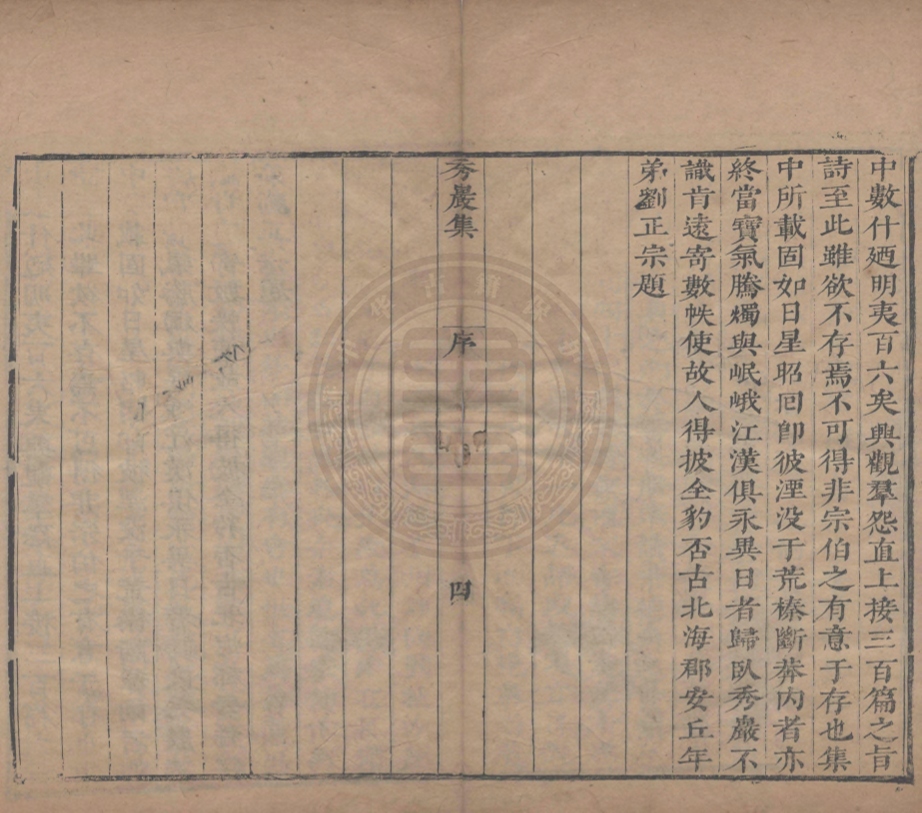 中數什廼明夷百六矣興觀羣怨直上接三百篇之旨
詩至此雖欲不存焉不可得非宗伯之有意于存也集
中所載固如日星昭回卽彼湮没于荒榛斷莽内者亦
終當寶氣騰燭與岷峨江漢俱永異日者歸臥秀巖不
識肯遠寄數帙使故人得披全豹否古北海郡安丘年
弟劉正宗題
秀巖集
序
四